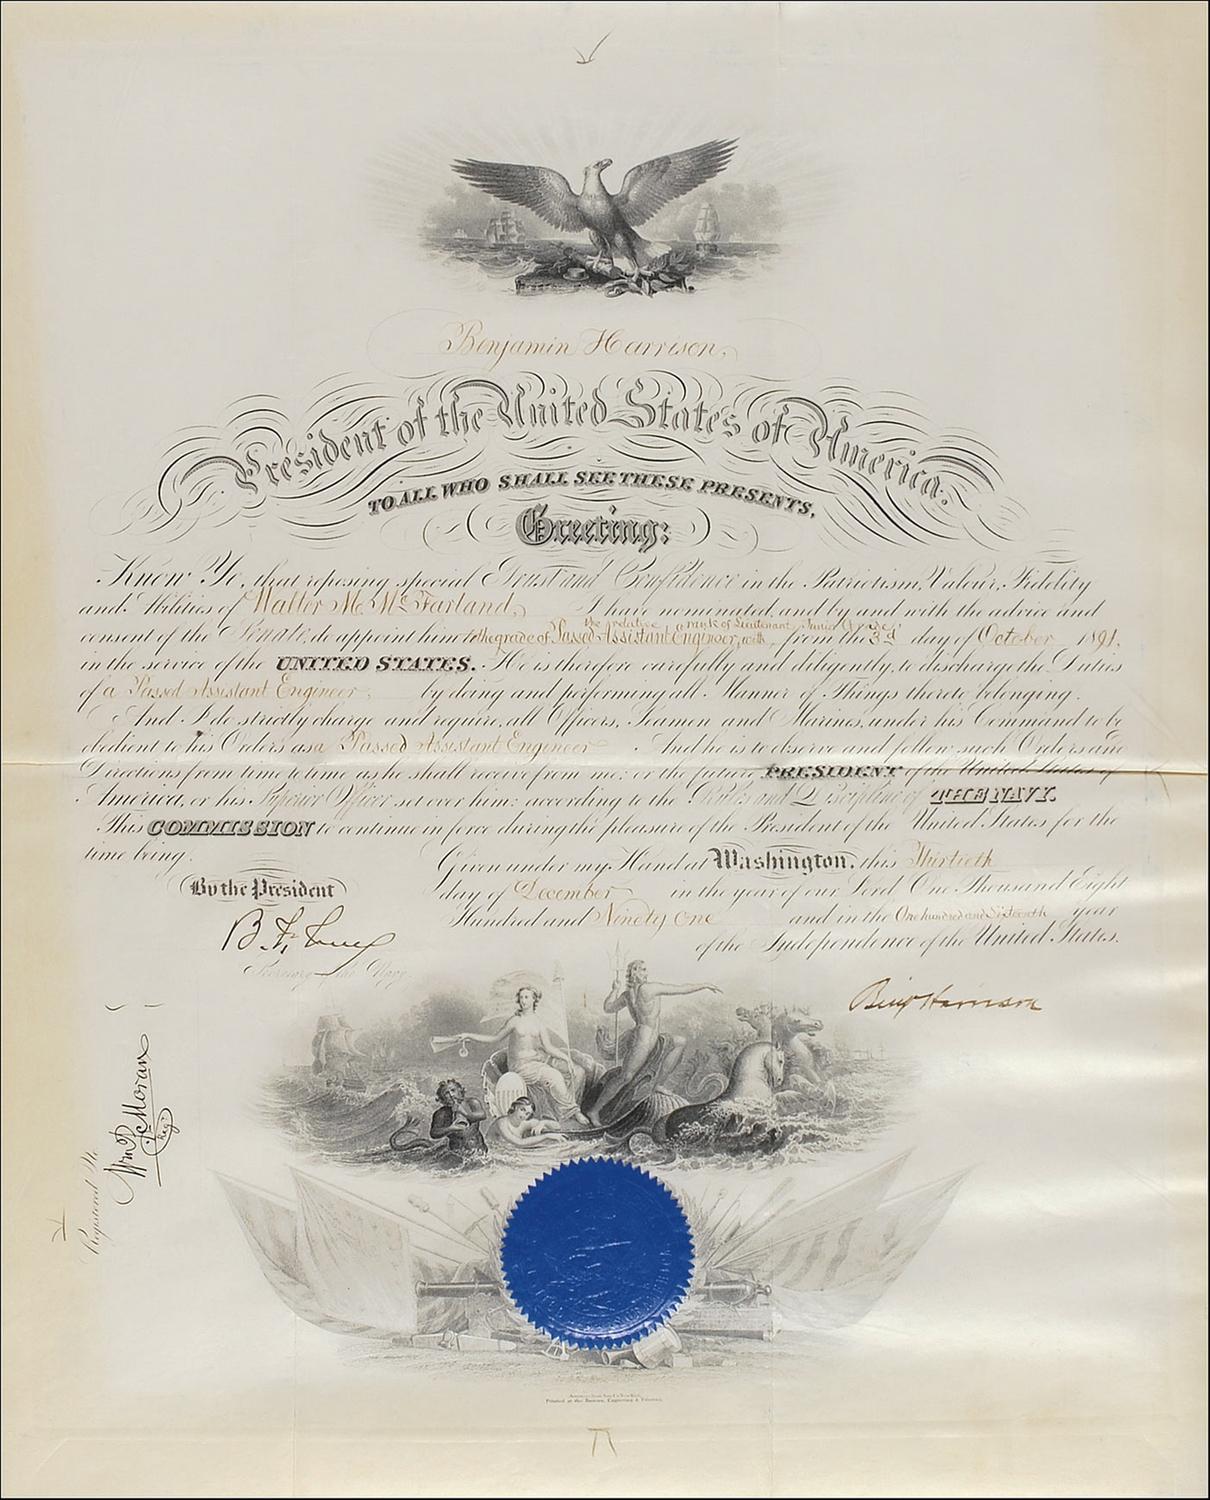 Benjamin Harrison,
President of the United States of America.
TO ALL WHO SHALL SEE THESE PRESENTS,
Greeting:
Know Ye, that reposing special Trust and Confidence in the Patriotism, Valour, Fidelity
and Abilities of Walter M. McFarland, I have nominated, and by and with the advice and
the relative rank of Lieutenant Junior Grade,
consent of the Senate, do appoint him to the grade of Passed Assistant Engineer, with from the 3rd day of October 1891,
in the service of the UNITED STATES. He is therefore carefully and diligently, to discharge the Duties
of a Passed Assistant Engineer, by doing and performing all Manner of Things thereto belonging.
And I do strictly charge and require, all Officers, Seamen and Marines, under his Command to be
obedient to his Orders as a Passed Assistant Engineer. And he is to observe and follow such Orders and
Directions from time to time as he shall receive from me: or the future PRESIDENT of the United States of
America, or his Superior Officer set over him: according to the Rules and Discipline of THE NAVY.
This COMMISSION to continue in force during the pleasure of the President of the United States for the
time being.
Given under my Hand at Washington, this Thirtieth
day of December in the year of our Lord One Thousand Eight
Hundred and Ninety One and in the One hundred and Sixteenth year
of the Independence of the United States.
By the President
B. F. Tracy
Secretary of the Navy
Benj Harrison
Registered No.
Wm P. Moran
Regr
Printed at the Bureau, Engraving & Printing.